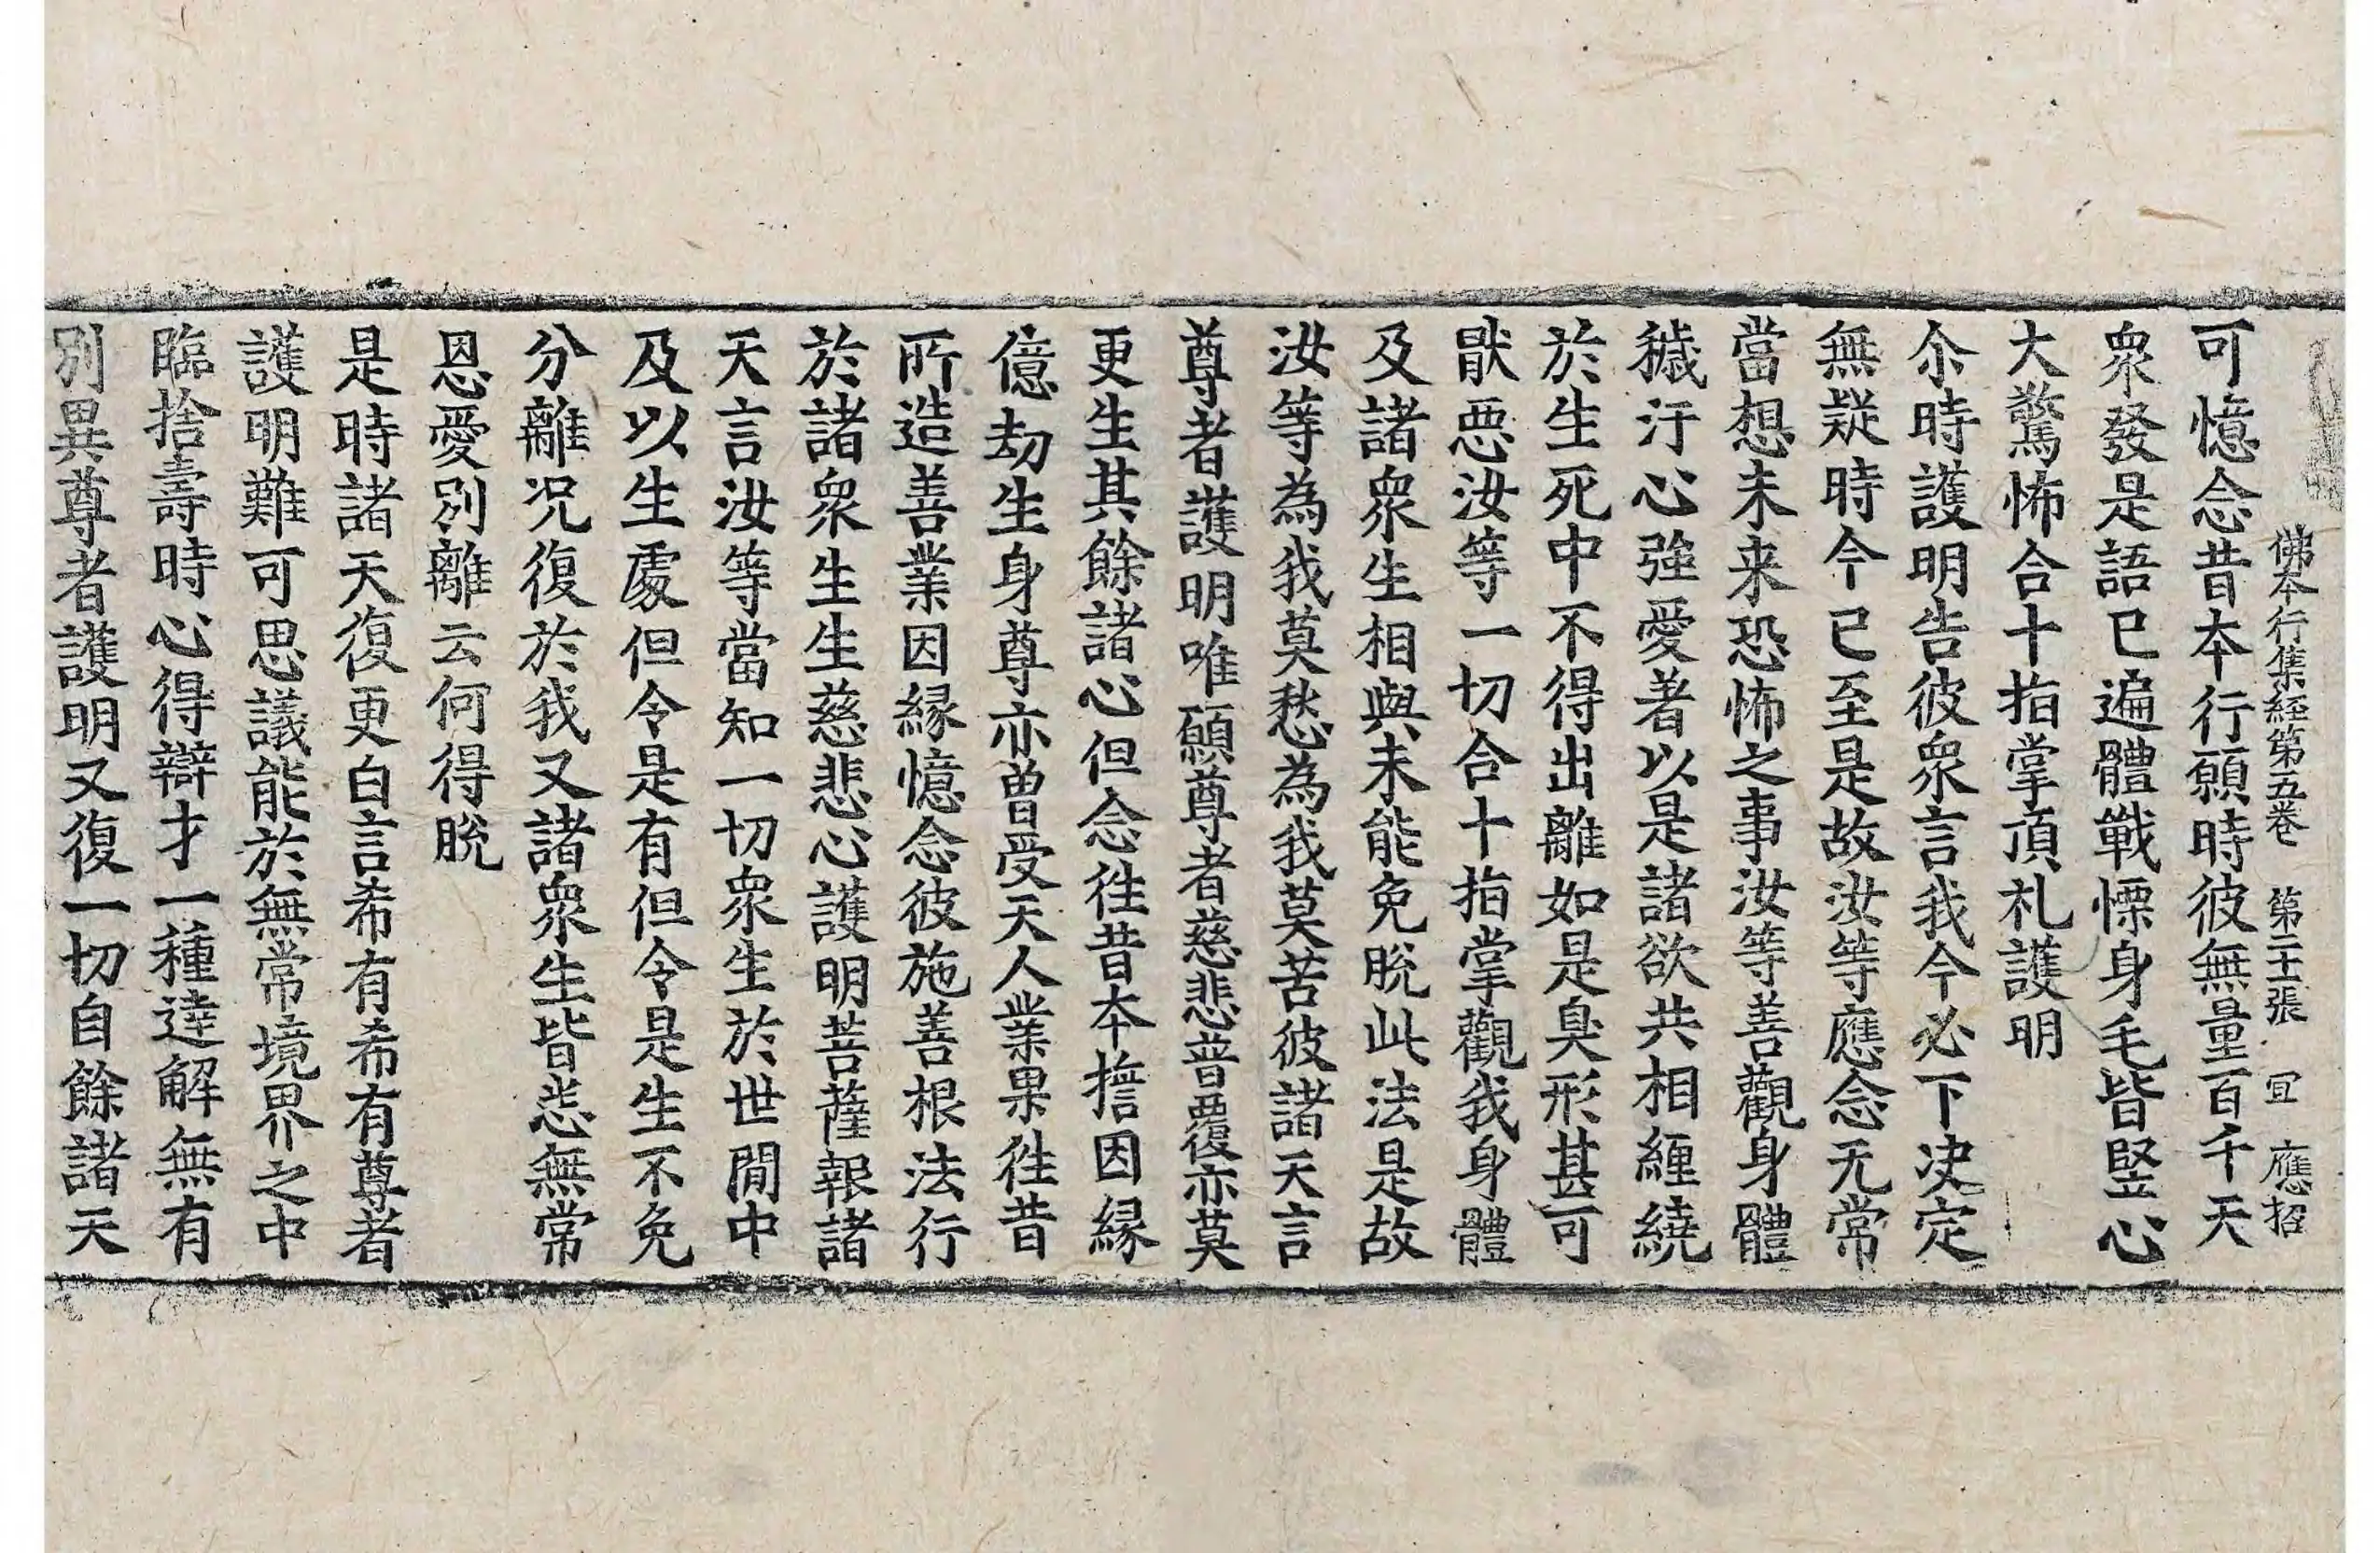 佛本行集經第五卷 第二十張 冝 應招
可憶念昔本行願時彼無量百千天
衆發是語已遍體戰慄身毛皆竪心
大驚怖合十指掌頂礼護明
尒時護明告彼衆言我今必下决定
無疑時今已至是故汝等應念无常
當想未来恐怖之事汝等善觀身體
穢汙心強愛著以是諸欲共相纏繞
於生死中不得出離如是臭形甚可
猒惡汝等一切合十指掌觀我身體
及諸衆生相與未能免脫此法是故
汝等為我莫愁為我莫苦彼諸天言
尊者護明唯願尊者慈悲普覆亦莫
更生其餘諸心但念徃昔本擔因縁
億劫生身尊亦曽受天人業果徃昔
所造善業因縁憶念彼施善根法行
於諸衆生生慈悲心護明菩薩報諸
天言汝等當知一切衆生於世間中
及以生處但令是有但令是生不免
分離况復於我又諸衆生皆悉無常
恩愛別離云何得脫
是時諸天復更白言希有希有尊者
護明難可思議能於無常境界之中
臨捨壽時心得辯才一種達解無有
別異尊者護明又復一切自餘諸天